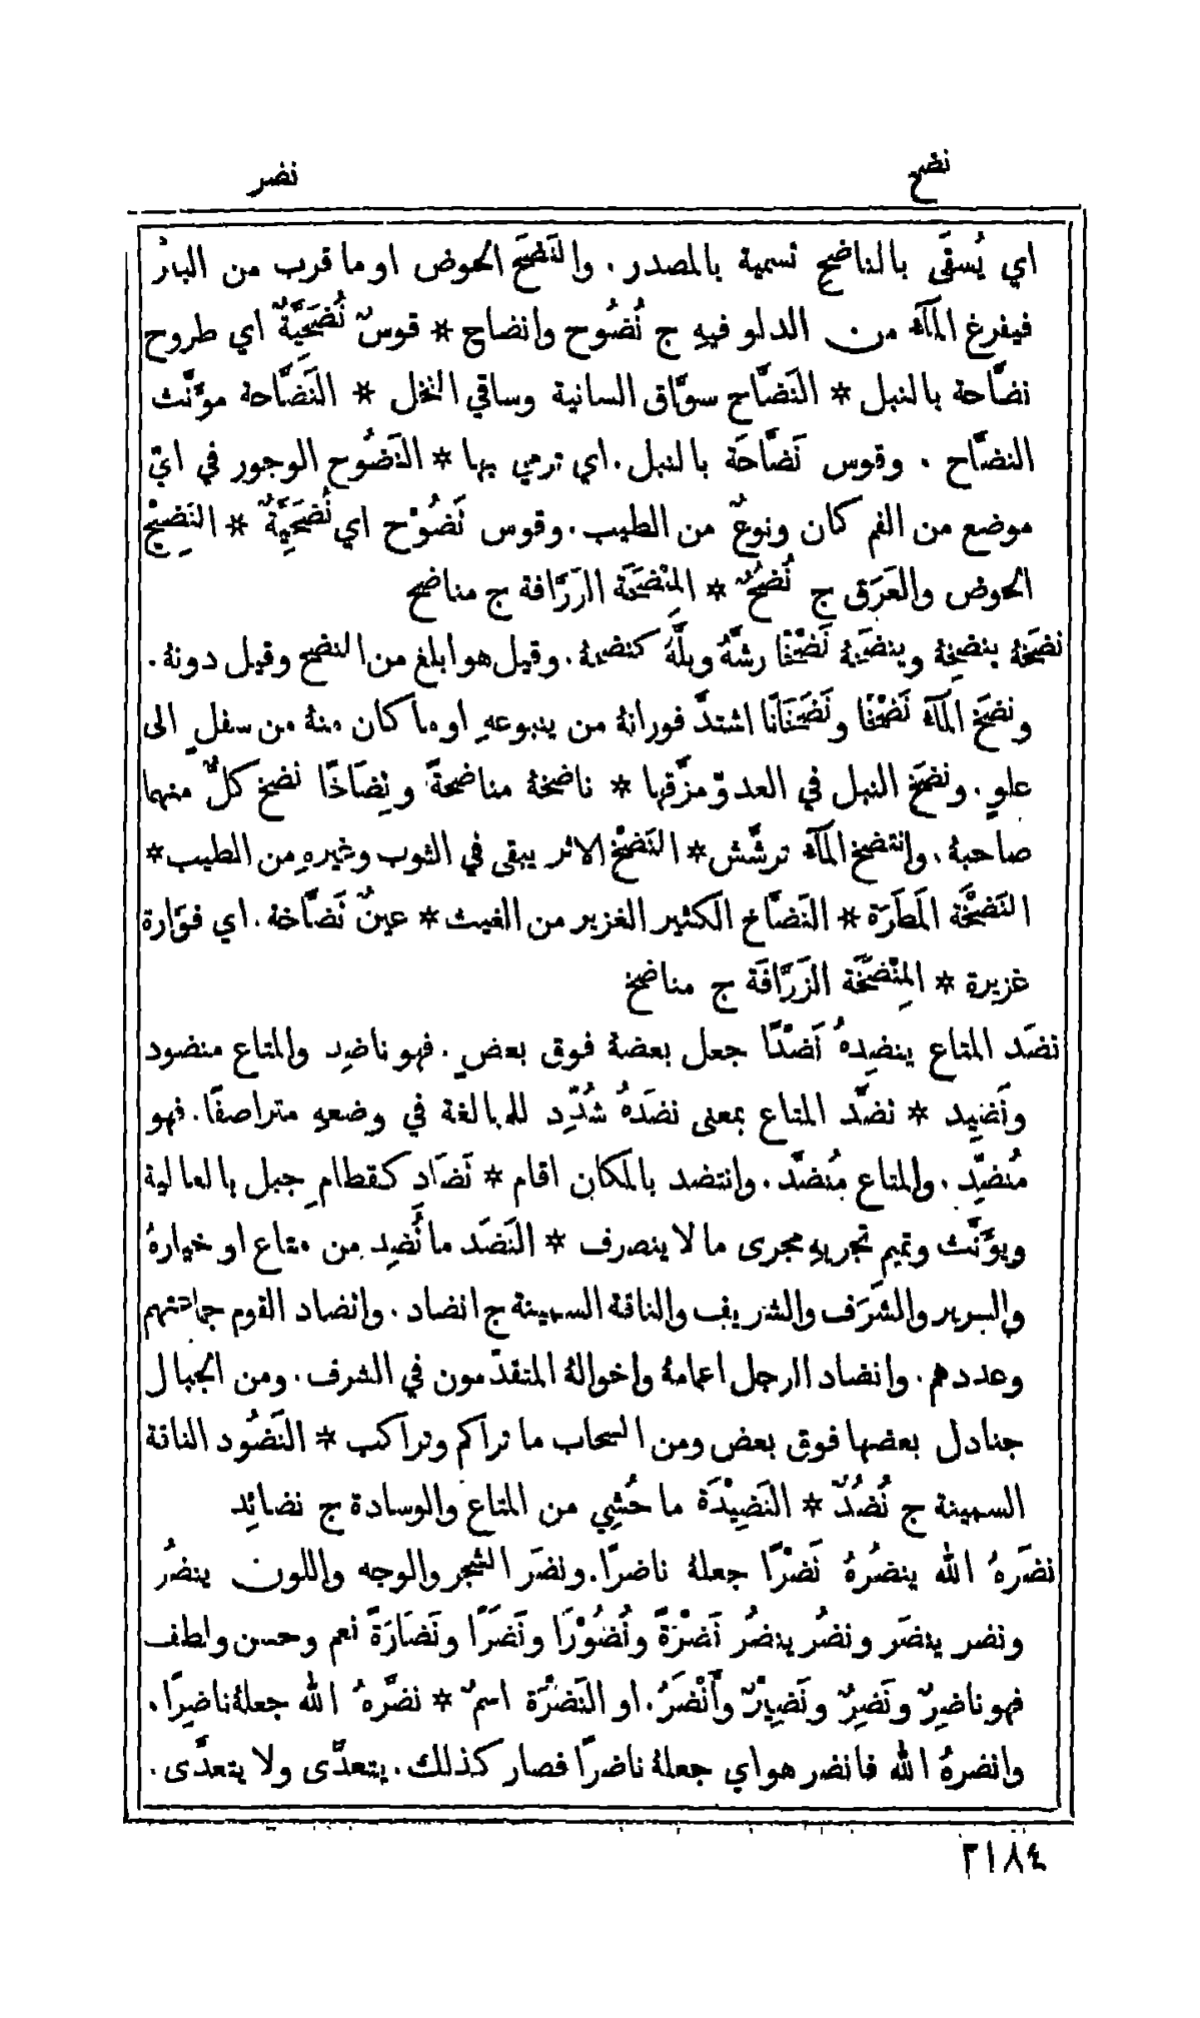 نضح
نضر
اي يُسقَى بالناضح تسمية بالمصدر. والنَضَح الحوض او ما قرب من البئر
فيفرغ المآء من الدلو فيهِ ج نُضُوح وانضاح * قوسٌ نُضَحِيَّةٌ اي طروح
نضَّاحة بالنبل * النَضَّاح سوَّاق السانية وساقي النخل * النَضَّاحة مؤَنَّث
النضَّاح . وقوس نَضَّاحَة بالنبل. اي ترمي بها * النَضُوح الوجور في ايّ
موضع من الفم كان ونوعٌ من الطيب. وقوس نَضُوْح اي نُضَحِيَّةٌ * النَضِيْح
الحوض والعَرَق ج نُضُحٌ * المِنْضَحَة الزَرَّافة ج مناضح
نضَخَهُ ينضِخهُ وينضَخهُ نَضْخًا رشَّهُ وبلَّهُ كنضحهُ. وقيل هو ابلغ من النضح وقيل دونهُ.
ونضَخ المآءُ نَضْخًا ونَضَخَانًا اشتدَّ فورانهُ من ينبوعهِ او ما كان منهُ من سفلٍ الى
علوٍ. ونضَخ النبل في العدوّ مزَّقها * ناضخهُ مناضخةً ونِضَاخًا نضخ كلٌّ منهما
صاحبهُ. وانتضخ المآء ترشَّش * النَضْخ الاثر يبقى في الثوب وغيرهِ من الطيب *
النَضْخَة المَطَرَة * النَضَّاخ الكثير الغزير من الغيث * عينٌ نَضَّاخة. اي فوَّارة
غزيرة * المِنْضَخَة الزَرَّافَة ج مناضخ
نضَد المتاع ينضِدهُ نَضْدًا جعل بعضهُ فوق بعضٍ. فهو ناضِد والمتاع منضود
ونَضِيد * نضَّد المتاع بمعنى نضَدَهُ شُدِّد للمبالغة في وضعهِ متراصفًا. فهو
مُنضِّد. والمتاع مُنضَّد. وانتضد بالمكان اقام * نَضَادِ كقطامِ جبل بالعالية
ويؤَنَّث وتميم تجريهِ مجرى ما لا ينصرف * النَضَد ما نُضِد من متاع او خيارهُ
والسرير والشَرَف والشريف والناقة السمينة ج انضاد. وانضاد القوم جماعتهم
وعددهم. وانضاد الرجل اعمامهُ واخوالهُ المتقدّمون في الشرف. ومن الجبال
جنادل بعضها فوق بعض ومن السحاب ما تراكم وتراكب * النَضُود الناقة
السمينة ج نُضُدٌ * النَضِيْدَة ما حُشِي من المتاع والوسادة ج نضائِد
نضَرَهُ الله ينضُرُهُ نَضْرًا جعلهُ ناضرًا. ونضَر الشجر والوجه واللون ينضُرُ
ونضر ينضَر ونضُر ينضُر نَضْرَةً ونُضُوْرًا ونَضَرًا ونَضَارَةً نعم وحسن ولطف
فهو ناضِرٌ ونَضِرٌ ونَضِيْرٌ وأَنْضَرُ. او النَضْرَة اسمٌ * نضَّرهُ الله جعلهُ ناضِرًا.
وانضرهُ الله فانضر هو اي جعلهُ ناضرًا فصار كذلك. يتعدَّى ولا يتعدَّى.
٢١٨٤